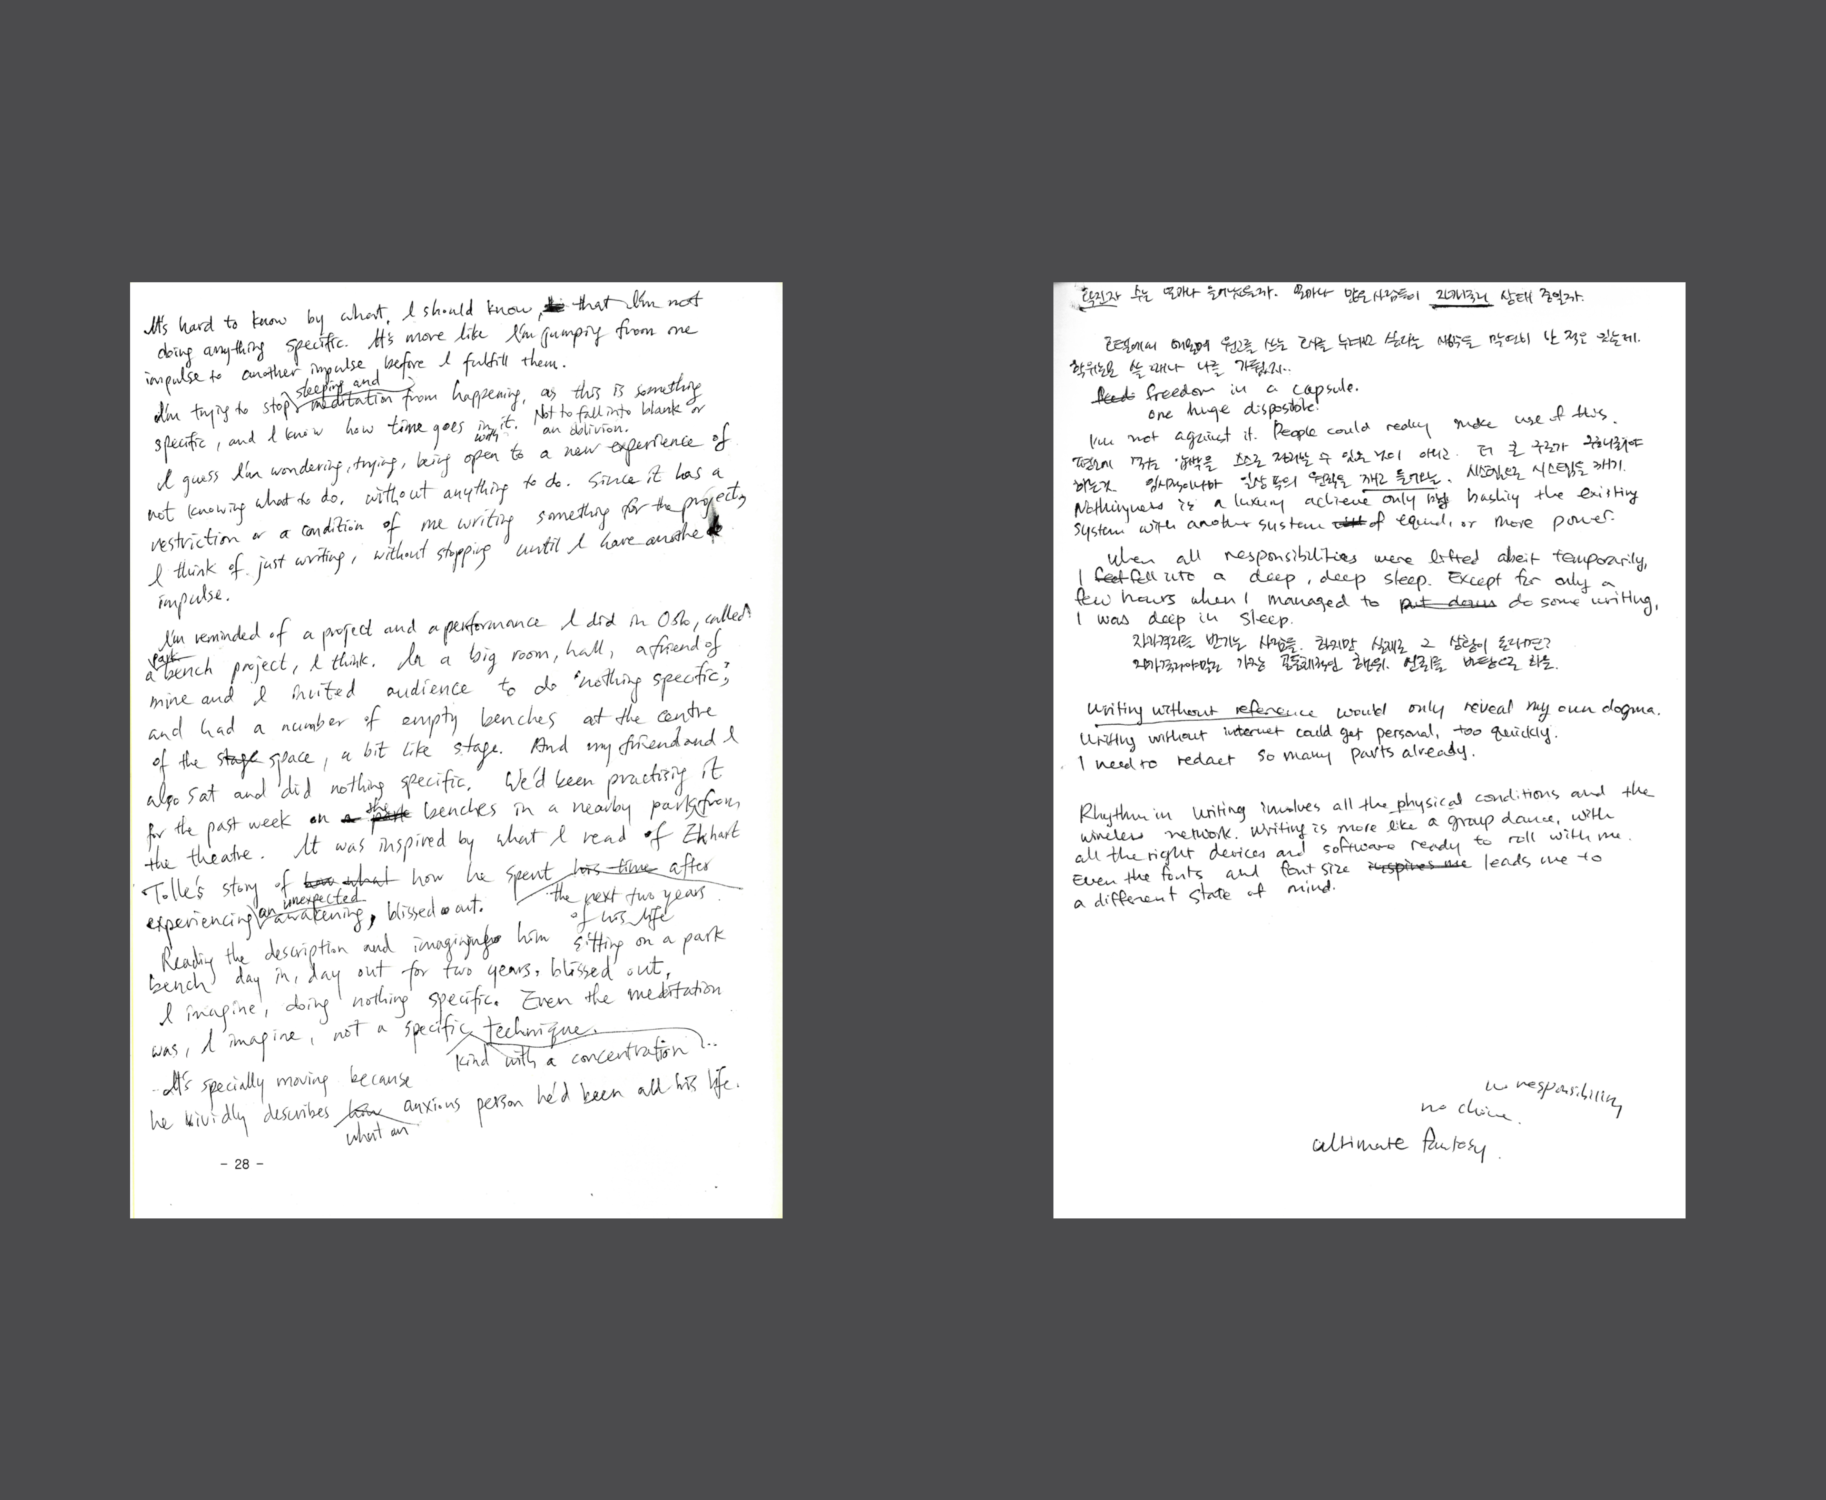 It's hard to know by what, I should know, that I'm not
doing anything specific. It's more like I'm jumping from one
impulse to another impulse before I fulfill them.
sleeping and
I'm trying to stop meditation from happening, as this is something
specific, and I know how time goes in it. Not to fall into blank or
with an oblivion.
I guess I'm wondering, trying, being open to a new experience of
not knowing what to do, without anything to do. Since it has a
restriction or a condition of me writing something for the project,
I think of just writing, without stopping until I have another
impulse.
I'm reminded of a project and a performance I did in Oslo, called
park
a bench project, I think. In a big room, hall, a friend of
mine and I invited audience to do "nothing specific",
and had a number of empty benches at the centre
of the stage space, a bit like stage. And my friend and I
also sat and did nothing specific. We'd been practising it
the
for the past week on a park benches in a nearby park from
the theatre. It was inspired by what I read of Ekhart
Tolle's story of how what how he spent his time after
an unexpected
experiencing awakening, blissed out. the next two years
of his life
Reading the description and imagining him sitting on a park
bench day in, day out for two years, blissed out,
I imagine, doing nothing specific. Even the meditation
was, I imagine, not a specific technique.
kind with a concentration
It's specially moving because
he vividly describes how anxious person he'd been all his life.
what an
- 28 -
확진자 수는 얼마나 늘어났을까. 얼마나 많은 사람들이 자가격리 상태 중일까.
호텔에서 원고를 쓰는 막연히 난 적은 있는데.
쓸 때나 나를
feed freedom in a capsule.
one huge disposible.
I'm not against it. People could really make use of this.
스스로 수 있는 것이 아니고. 더 큰
하는 것 일상 속의 깨고 들어오는. 시스템으로 시스템을 깨기.
Nothingness is a luxury achieve only by bashing the existing
system with another system of equal, or more power.
When all responsibilities were lifted abeit temporarily,
I feel fell into a deep, deep sleep. Except for only a
few hours when I managed to put down do some writing,
I was deep in sleep.
자가격리를 반기는 사람들. 하지만 실제로 그 상황이 온다면?
자가격리야말로 가장 공동체적인 행위. 신뢰를 바탕으로 하는.
Writing without reference would only reveal my own dogma.
Writing without internet could get personal, too quickly.
I need to redact so many parts already.
Rhythm in writing involves all the physical conditions and the
wireless network. Writing is more like a group dance, with
all the right devices and software ready to roll with me.
Even the fonts and font size inspires me leads me to
a different state of mind.
no responsibility
no choice.
ultimate fantasy.